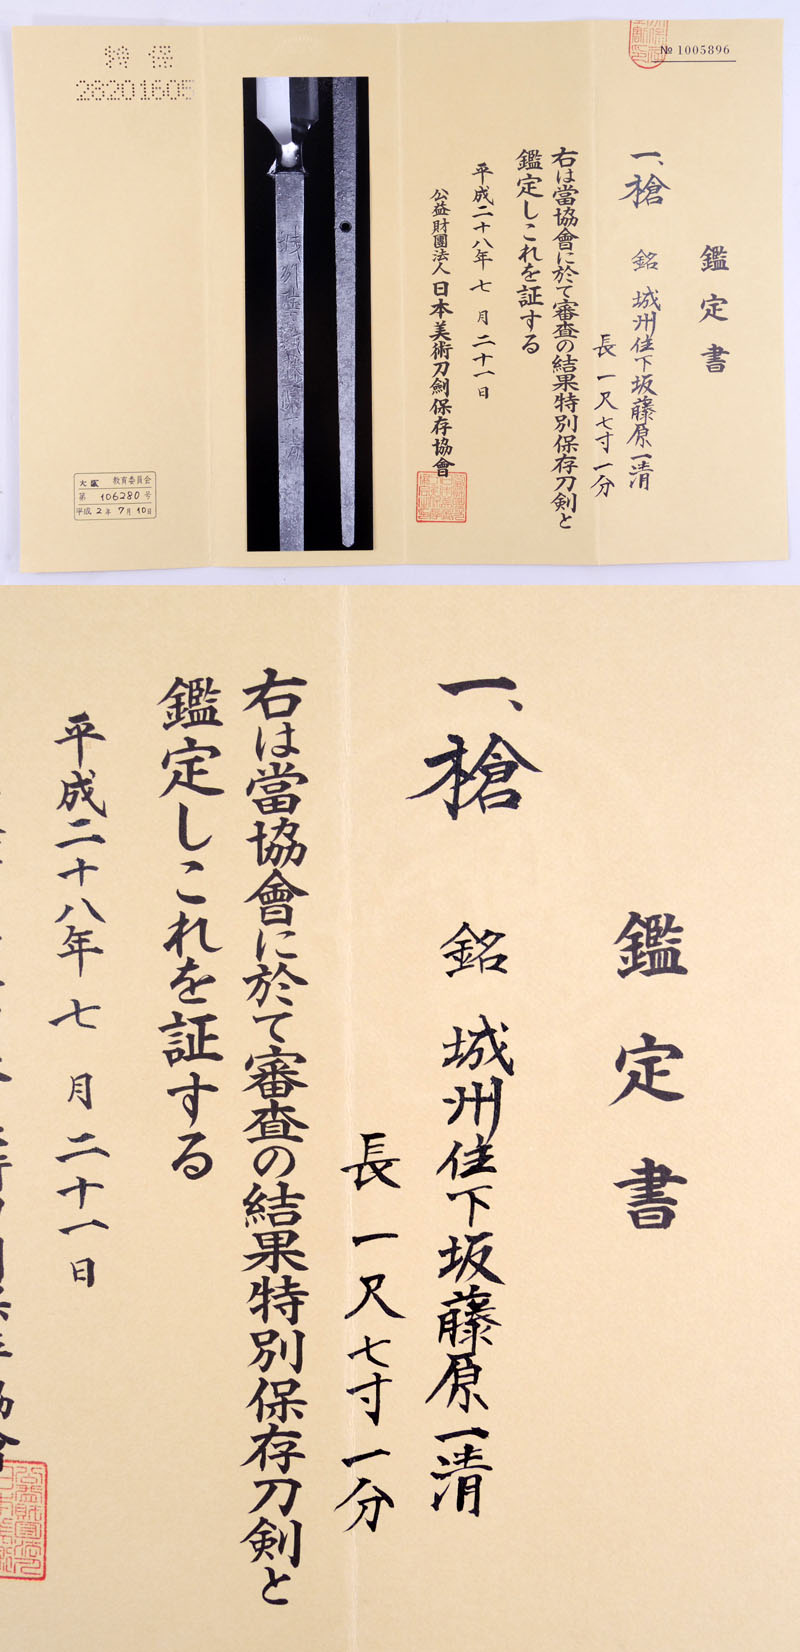 № 1005896
鑑定書
一、槍 銘 城州住下坂藤原一清
長 一尺七寸一分
右は當協會に於て審査の結果特別保存刀剣と
鑑定しこれを証する
平成二十八年七月二十一日
公益財團法人日本美術刀劍保存協會
特保
28201605
大阪 教育委員会
第 106280 号
平成 2年 7月 10日
鑑定書
一、槍 銘 城州住下坂藤原一清
長 一尺七寸一分
右は當協會に於て審査の結果特別保存刀剣と
鑑定しこれを証する
平成二十八年七月二十一日